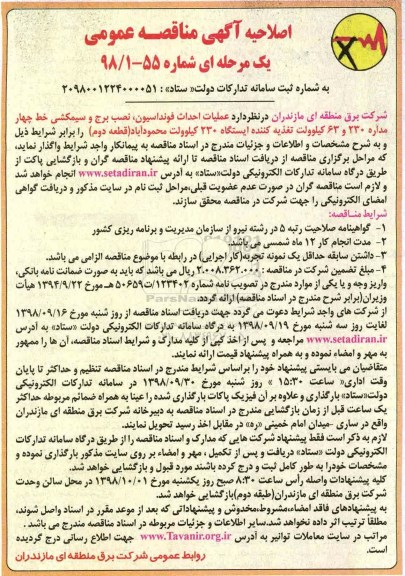 اصلاحیه آگهی مناقصه عمومی
یک مرحله ای شماره ۵۵-۹۸/۱
به شماره ثبت سامانه تدارکات دولت« ستاد» : ۲۰۹۸۰۰۱۲۲۴۰۰۰۰۵۱
شرکت برق منطقه ای مازندران درنظردارد عملیات احداث فونداسیون، نصب برج و سیمکشی خط چهار
مداره ۲۳۰ و ۶۳ کیلوولت تغذیه کننده ایستگاه ۲۳۰ کیلوولت محمودآباد(قطعه دوم) را برابر شرایط ذیل
و به شرح مشخصات و اطلاعات و جزئیات مندرج در اسناد مناقصه به پیمانکار واجد شرایط واگذار نماید،
که مراحل برگزاری مناقصه از دریافت اسناد مناقصه تا ارائه پیشنهاد مناقصه گران و بازگشایی پاکت از
طریق درگاه سامانه تدارکات الکترونیکی دولت«ستاد» به آدرس www.setadiran.ir انجام خواهد شد
و لازم است مناقصه گران در صورت عدم عضویت قبلی،مراحل ثبت نام در سایت مذکور و دریافت گواهی
امضای الکترونیکی را جهت شرکت در مناقصه محقق سازند.
شرایط مناقصه:
۱- گواهینامه صلاحیت رتبه ۵ در رشته نیرو از سازمان مدیریت و برنامه ریزی کشور
۲- مدت انجام کار ۱۲ ماه شمسی می‌باشد.
۳- داشتن سابقه حداقل یک نمونه تجربه(کار اجرایی) در رابطه با موضوع مناقصه الزامی می باشد.
۴- مبلغ تضمین شرکت در مناقصه : ۲.۰۰۸.۳۶۲.۰۰۰ ریال می باشد که باید به صورت ضمانت نامه بانکی،
واریز وجه و یا یکی از موارد مندرج در تصویب نامه شماره ۱۲۳۴۰۲/ت۵۰۶۵۹ هـ مورخ ۱۳۹۴/۹/۲۲ هیأت
وزیران(برابر شرح مندرج در اسناد مناقصه) ارائه گردد.
از شرکت های واجد شرایط دعوت می گردد جهت دریافت اسناد مناقصه از روز شنبه مورخ ۱۳۹۸/۰۹/۱۶
لغایت روز سه شنبه مورخ ۱۳۹۸/۰۹/۱۹ به درگاه سامانه تدارکات الکترونیکی دولت «ستاد» به آدرس
www.setadiran.ir مراجعه و پس از اخذ کپی از کلیه مدارک و شرایط اسناد مناقصه، آن ها را ممهور
به مهر و امضاء نموده و به همراه پیشنهاد قیمت ارائه نمایند.
متقاضیان می بایستی پیشنهاد خود را براساس شرایط مندرج در اسناد مناقصه تنظیم و حداکثر تا پایان
وقت اداری« ساعت ۱۵:۳۰ » روز شنبه مورخ ۱۳۹۸/۰۹/۳۰ در سامانه تدارکات الکترونیکی
دولت«ستاد» بارگذاری و علاوه بر آن فیزیک پاکات بارگذاری شده را عینا به همراه ضمائم مربوطه حداکثر
یک ساعت قبل از زمان بازگشایی مندرج در اسناد مناقصه به دبیرخانه شرکت برق منطقه ای مازندران
واقع در ساری -میدان امام خمینی «ره» در مقابل اخذ رسید تحویل نمایند.
لازم به ذکر است فقط پیشنهاد شرکت هایی که مدارک و اسناد مناقصه را از طریق درگاه سامانه تدارکات
الکترونیکی دولت «ستاد» دریافت و پس از تکمیل ، مهر و امضاء بر روی سایت مذکور بارگذاری نموده و
مشخصات خودرا به طور کامل ثبت و درج کرده باشند مورد قبول و بازگشایی خواهد شد.
کلیه پیشنهادات واصله رأس ساعت ۸:۳۰ صبح روز یکشنبه مورخ ۱۳۹۸/۱۰/۰۱ در محل سالن وحدت
شرکت برق منطقه ای مازندران(طبقه دوم)بازگشایی خواهد شد.
به پیشنهادهای فاقد امضاء،مشروط،مخدوش و پیشنهاداتی که بعد از موعد مقرر در اسناد واصل شوند،
مطلقا ترتیب اثر داده نخواهد شد.سایر اطلاعات و جزئیات مربوطه در اسناد مناقصه مندرج می باشد .
مراتب در سایت معاملات توانیر به آدرس www.Tavanir.org.ir جهت اطلاع رسانی درج گردیده
است.
روابط عمومی شرکت برق منطقه ای مازندران